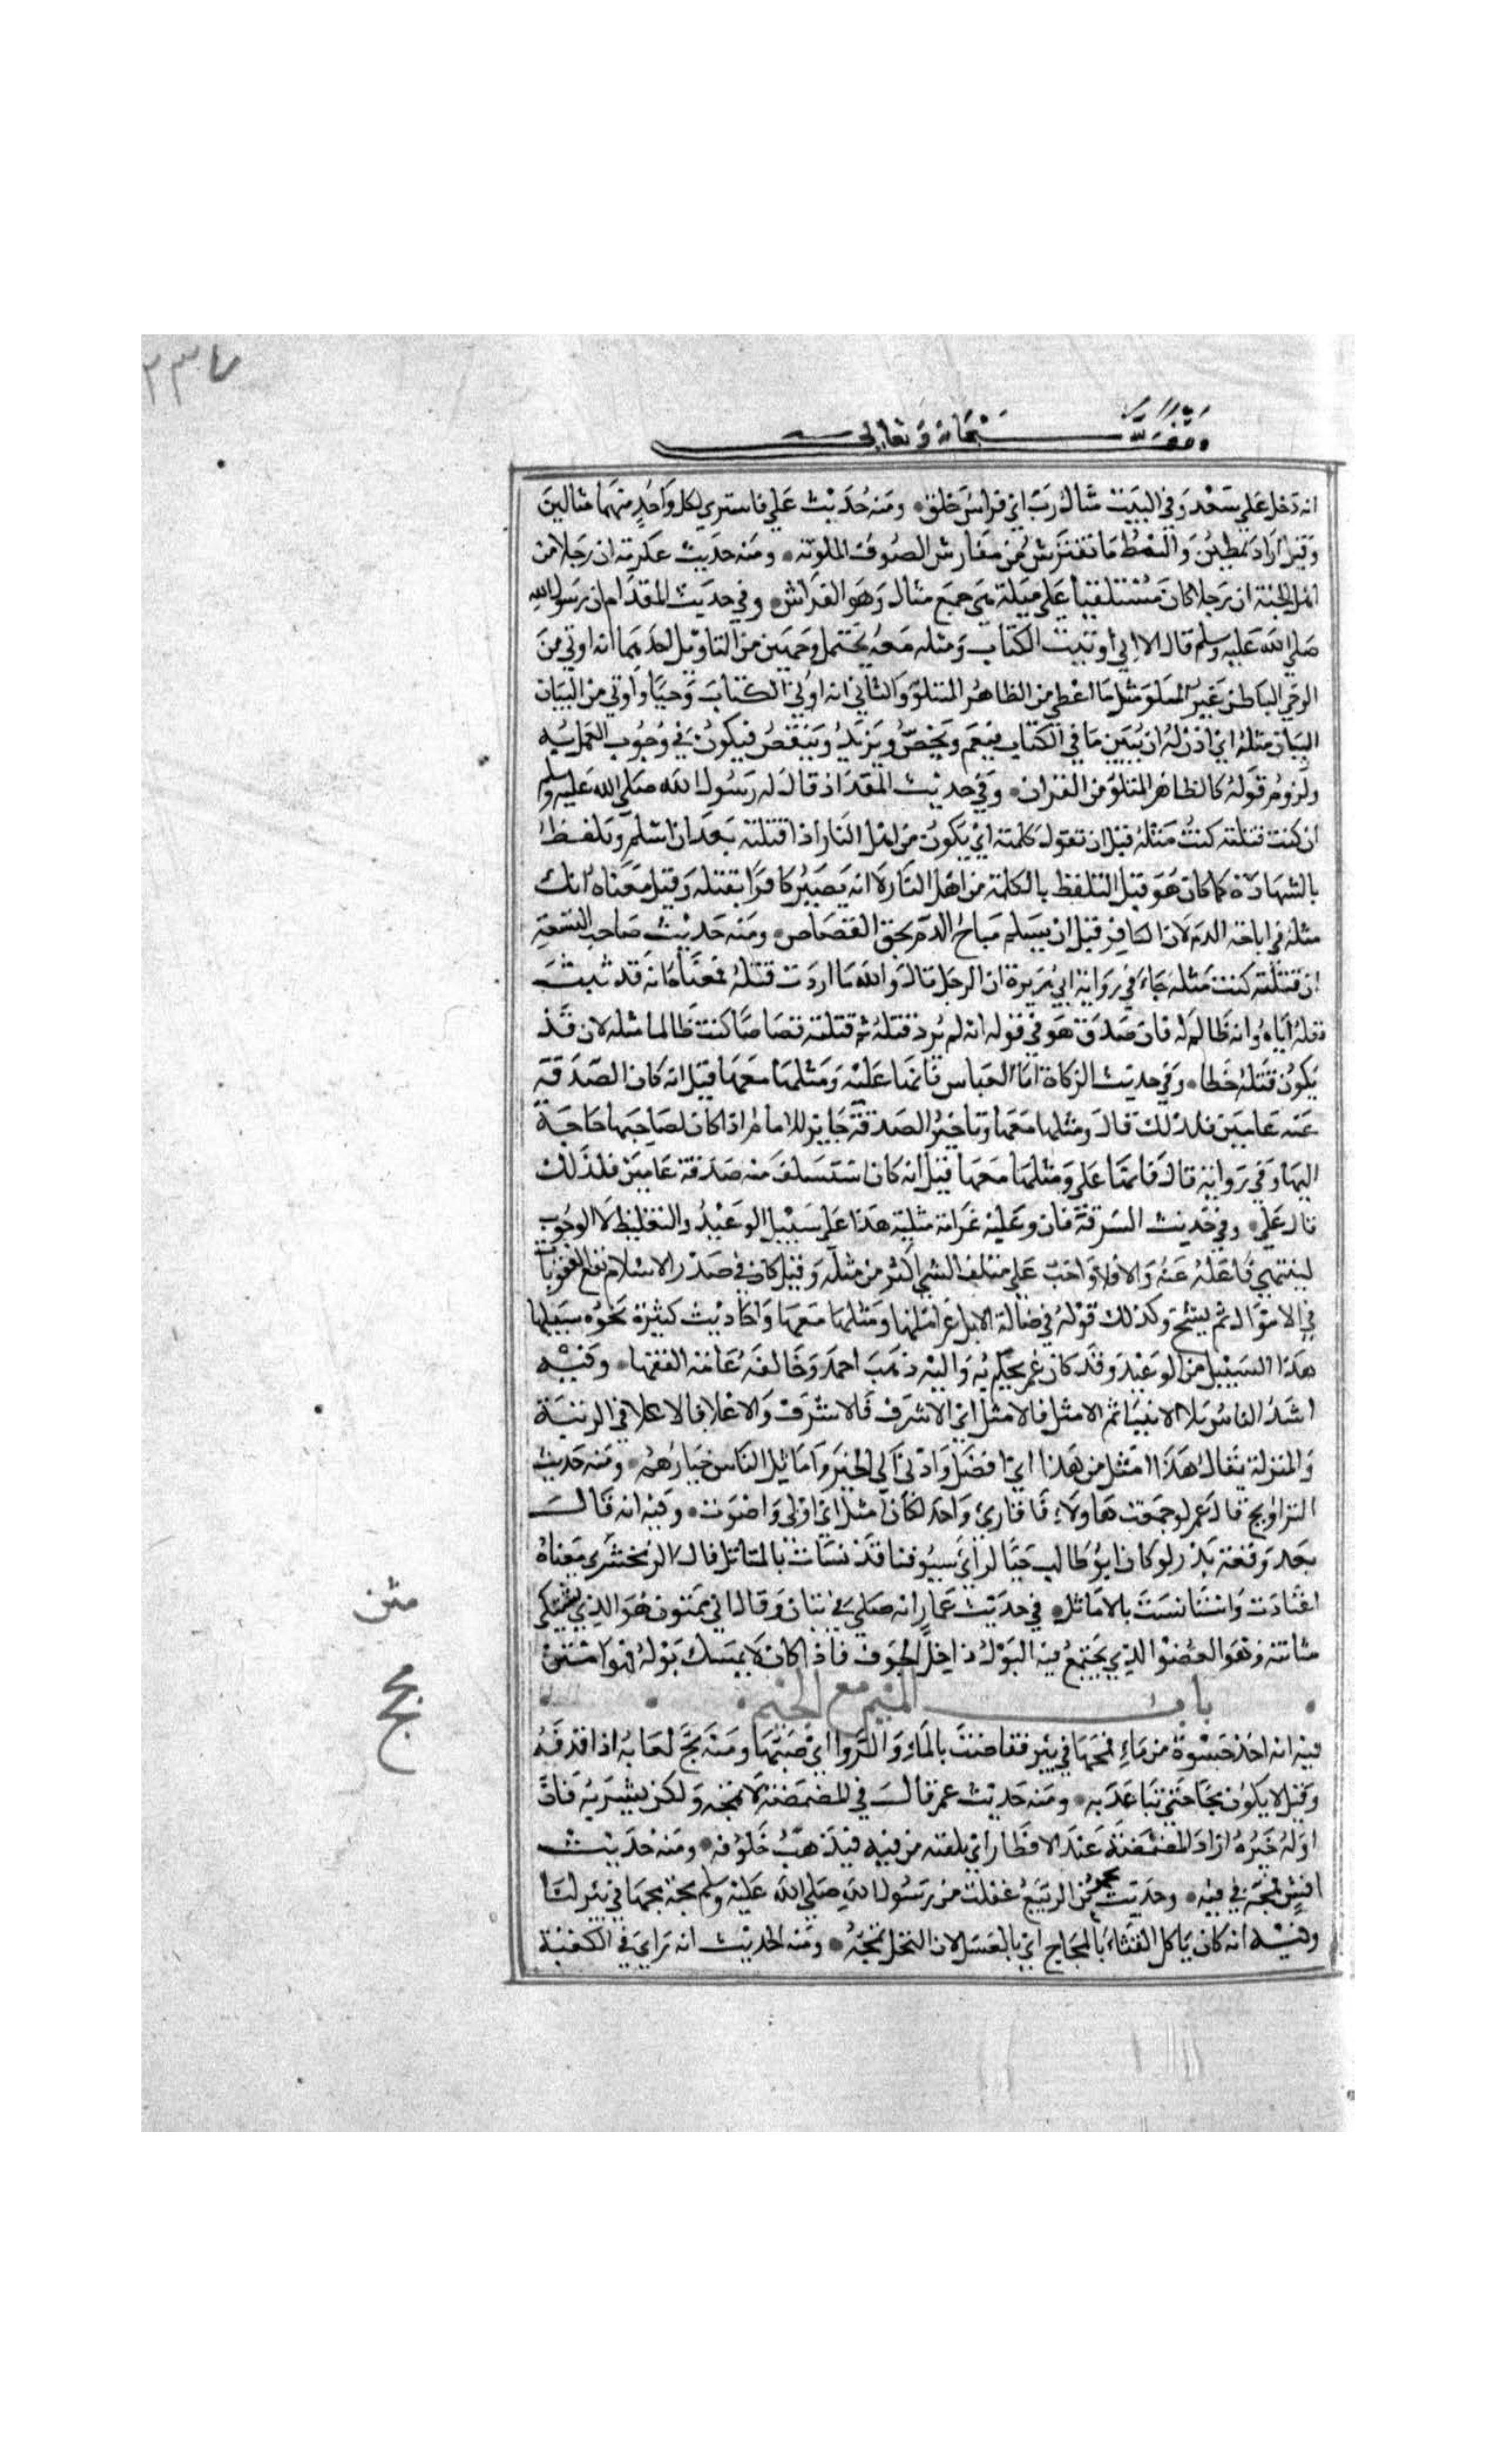 ٢٣٧
وقف لله سبحانه وتعالى
انه دخل علي سعد وفي البيت مثال رث اي فراش خلق ٠ ومنه حديث علي فاشتري لكل واحد منهما مثالين
وقيل اراد نمطين والنمط ما تفترش من مفارش الصوف الملونة ٠ ومنه حديث عكرمة ان رجلا من
اهل الجنة ان رجلا كان مستلقيا علي مثله هي جمع مثال وهو الفراش ٠ وفي حديث المقدام ان رسول الله
صلي الله عليه وسلم قال الا اني اوتيت الكتاب ومثله معه يحتمل وجهين من التاويل احدهما انه اوتي من
الوحي الباطن غير المتلو مثل ما اعطي من الظاهر المتلو والثاني انه اوتي الكتاب وحيا واوتي من البيان
البيان مثله اي اذن له ان يبين ما في الكتاب فيعم ويخص ويزيد وينقص فيكون في وجوب العمل به
ولزوم قوله كالظاهر المتلو من القران ٠ وفي حديث المقداد قال له رسول الله صلي الله عليه وسلم
ان كنت قتلته كنت مثله قبل ان تقول كلمته اي يكون من اهل النار اذا قتلته بعد ان اسلم وتلفظ
بالشهادة كما كان هو قبل التلفظ بالكلمة من اهل النار لا انه يصير كافرا بقتله وقيل معناه انك
مثله في اباحة الدم لان الكافر قبل ان يسلم مباح الدم بحق القصاص ٠ ومنه حديث صاحب النسعة
ان قتلته كنت مثله جاء في رواية ابي هريرة ان الرجل قال والله ما اردت قتله فمعناه انه قد ثبت
قتله اياه وانه ظالم له فان صدق هو في قوله انه لم يرد قتله ثم قتلته قصاصا كنت ظالما مثله لان قد
يكون قتله خطا ٠ وفي حديث الزكاة اما العباس فانها عليه ومثلها معها قيل انه كان الصدقة
عنه عامين فلذلك قال ومثلها معها وتاخير الصدقة جايز للامام اذا كان لصاحبها حاجة
اليها وفي رواية قال فانها علي ومثلها معها قيل انه كان استسلف منه صدقة عامين فلذلك
قال علي ٠ وفي حديث السرقة فان وعليه غرامة مثليه هذا علي سبيل الوعيد والتغليظ لا الوجوب
لينتهي فاعله عنه والا فلا واجب علي متلف الشي اكثر من مثله وقيل كان في صدر الاسلام تقع العقوبات
في الاموال ثم ينسخ وكذلك قوله في ضالة الابل غرامتها ومثلها معها واحاديث كثيرة نحوه سبيلها
هذا السبيل من الوعيد وقد كان عمر يحكم به واليه ذهب احمد وخالفه عامة الفقها ٠ وفيه
اشد الناس بلاء الانبيا ثم الامثل فالامثل اي الاشرف فالاشرف والاعلا فالاعلا في الرتبة
والمنزلة يقال هذا امثل من هذا اي افضل وادني الي الخير واماثل الناس خيارهم ٠ ومنه حديث
التراويح قال عمر لو جمعت هاولاء قا قارئ واحد لكان امثل اي اولي واصوب ٠ وفيه انه قال
بعد وقعة بدر لو كان ابو طالب حيا لراي سيوفنا قد نسات بالمثاتل قال الزمخشري معناه
اعتادت واستانست بالاماثل ٠ في حديث عمار انه صلي في تبان وقال اني ممثون هو الذي يشتكي
مثانته وهو العضو الذي يجتمع فيه البول داخل الجوف فاذا كان لا يمسك بوله فهو امثن
باب الميم مع الجيم
فيه انه اخذ حسوة من ماء فمجها في بير ففاضت بالماء والروا اي صبتها ومنه مج لعابه اذا قذفه
وقيل لا يكون مجا حتي تباعد به ٠ ومنه حديث عمر قال في المضمضة لا تمجه ولكن يشربه فان
اوله خيره اراد المضمضة عند الافطار اي يلقته من فيه فيذهب خلوفه ٠ ومنه حديث
انس فمجه في فيه ٠ وحديث محمود بن الربيع عقلت من رسول الله صلي الله عليه وسلم مجة مجها في بير لنا
وفيه انه كان ياكل القثاء بالمجاج اي بالعسل لان النحل تمجه ٠ ومنه الحديث انه راي في الكعبة
مثن
مج